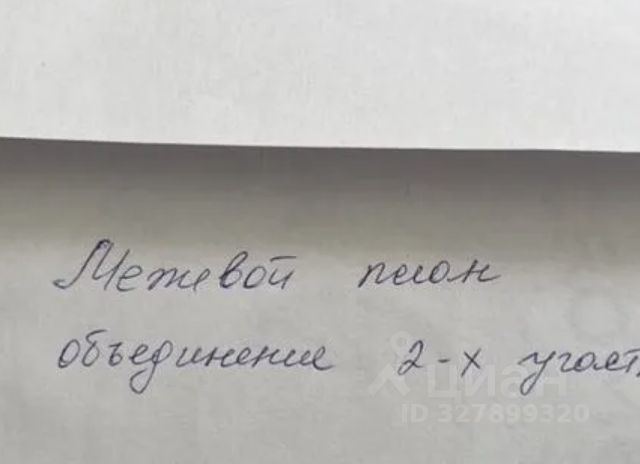 Межевой план
объединение 2-х участ
циан
ID 327899320